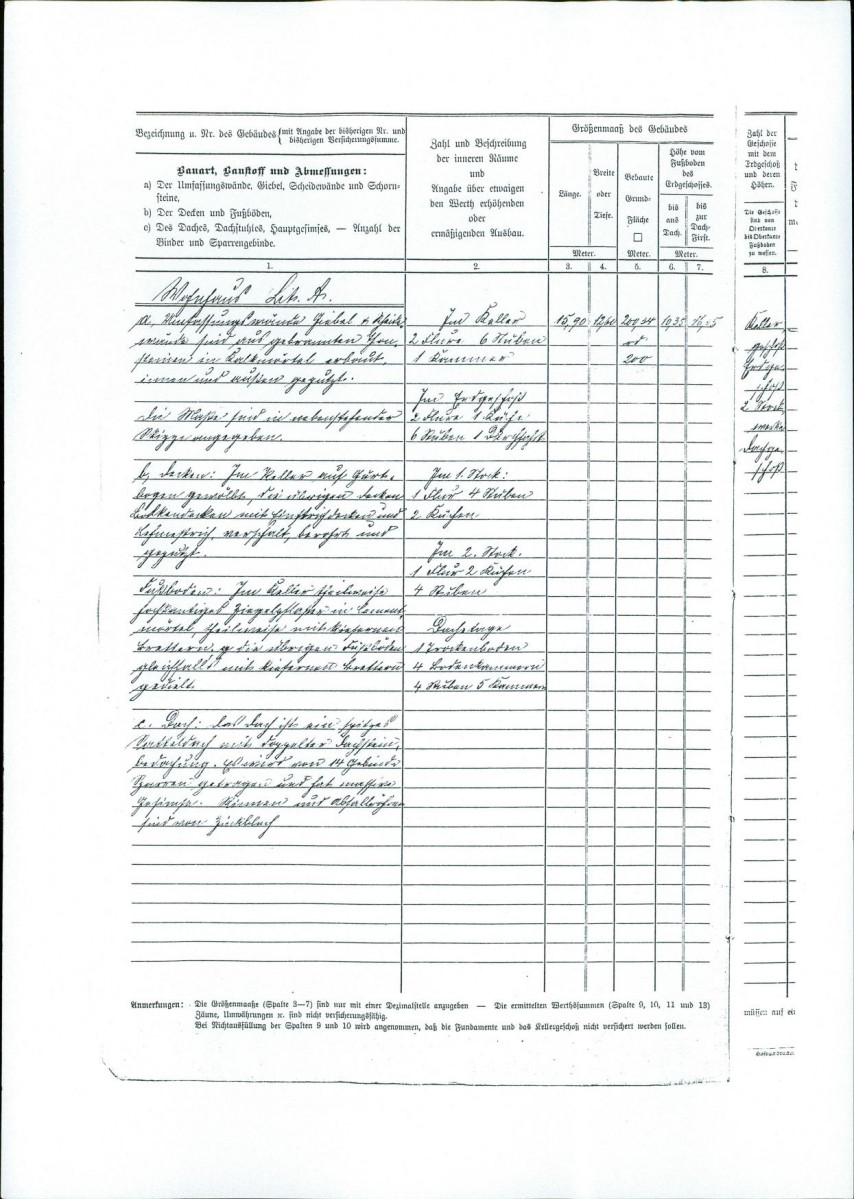 Bezeichnung u. Nr. des Gebäudes (mit Angabe der bisherigen Nr. und
bisherigen Versicherungssumme.
Bauart, Baustoff und Abmessungen:
a) Der Umfassungswände, Giebel, Scheidewände und Schorn-
steine,
b) Der Decken und Fußböden,
c) Des Daches, Dachstuhles, Hauptgesimses, — Anzahl der
Binder und Sparrengebinde.
1.
Zahl und Beschreibung
der inneren Räume
und
Angabe über etwaigen
den Werth erhöhenden
oder
ermäßigenden Ausbau.
2.
Größenmaaß des Gebäudes
Länge.
Breite
oder
Tiefe.
Gebaute
Grund-
Fläche
□
Höhe vom
Fußboden
des
Erdgeschosses.
bis
ans
Dach.
bis
zur
Dach-
First.
Meter.
Meter.
Meter.
3.
4.
5.
6.
7.
Zahl der
Geschosse
mit dem
Erdgeschoß
und deren
Höhen.
Die Geschosse
sind von
Oberkante
bis Oberkante
Fußboden
zu messen.
8.
Wohnhaus Litr. A.
a, Umfassungswände Giebel & Scheide-
wände sind aus gebrannten Thon-
steinen in Kalkmörtel erbaut,
innen und außen geputzt.
Die Maße sind in nebenstehender
Skizze angegeben.
b, Decken: Im Keller auf Gurt-
bogen gewölbt, die übrigen Decken
Balkendecken mit Einstrichdecken und
Lehmestrich, verschalt, berohrt und
geputzt.
Fußboden: Im Keller theilweise
hochkantiges Ziegelpflaster in Cement-
mörtel, theilweise mit kiefernen
Brettern, die übrigen Fußböden
gleichfalls mit kiefernen Brettern
gedielt.
c. Dach: Das Dach ist ein spitzes
Satteldach mit doppelter Dachstein-
bedachung. Es wird von 14 Gebinde
Sparren getragen und hat massive
Gesimse. Rinnen und Abfallröhren
sind von Zinkblech
Im Keller
2 Flure 6 Stuben
1 Kammer
Im Erdgeschoß
2 Flure 1 Küche
6 Stuben 1
Im 1. Stock:
1 Flur 4 Stuben
2 Küchen
Im 2. Stock.
1 Flur 2 Küchen
4 Stuben
Dachetage
1 Trockenboden
4 Bodenkammern
4 Stuben 5 Kammern
15,90 12,60 200,34 10,35
rd
200
Keller-
geschoß
Erdge-
schoß
2. Stock-
werke
Dachge-
schoß
Anmerkungen: Die Größenmaaße (Spalte 3—7) sind nur mit einer Dezimalstelle anzugeben — Die ermittelten Werthssummen (Spalte 9, 10, 11 und 13)
Zäune, Umwährungen rc. sind nicht versicherungsfähig.
Bei Nichtausfüllung der Spalten 9 und 10 wird angenommen, daß die Fundamente und das Kellergeschoß nicht versichert werden sollen.
müssen auf ein